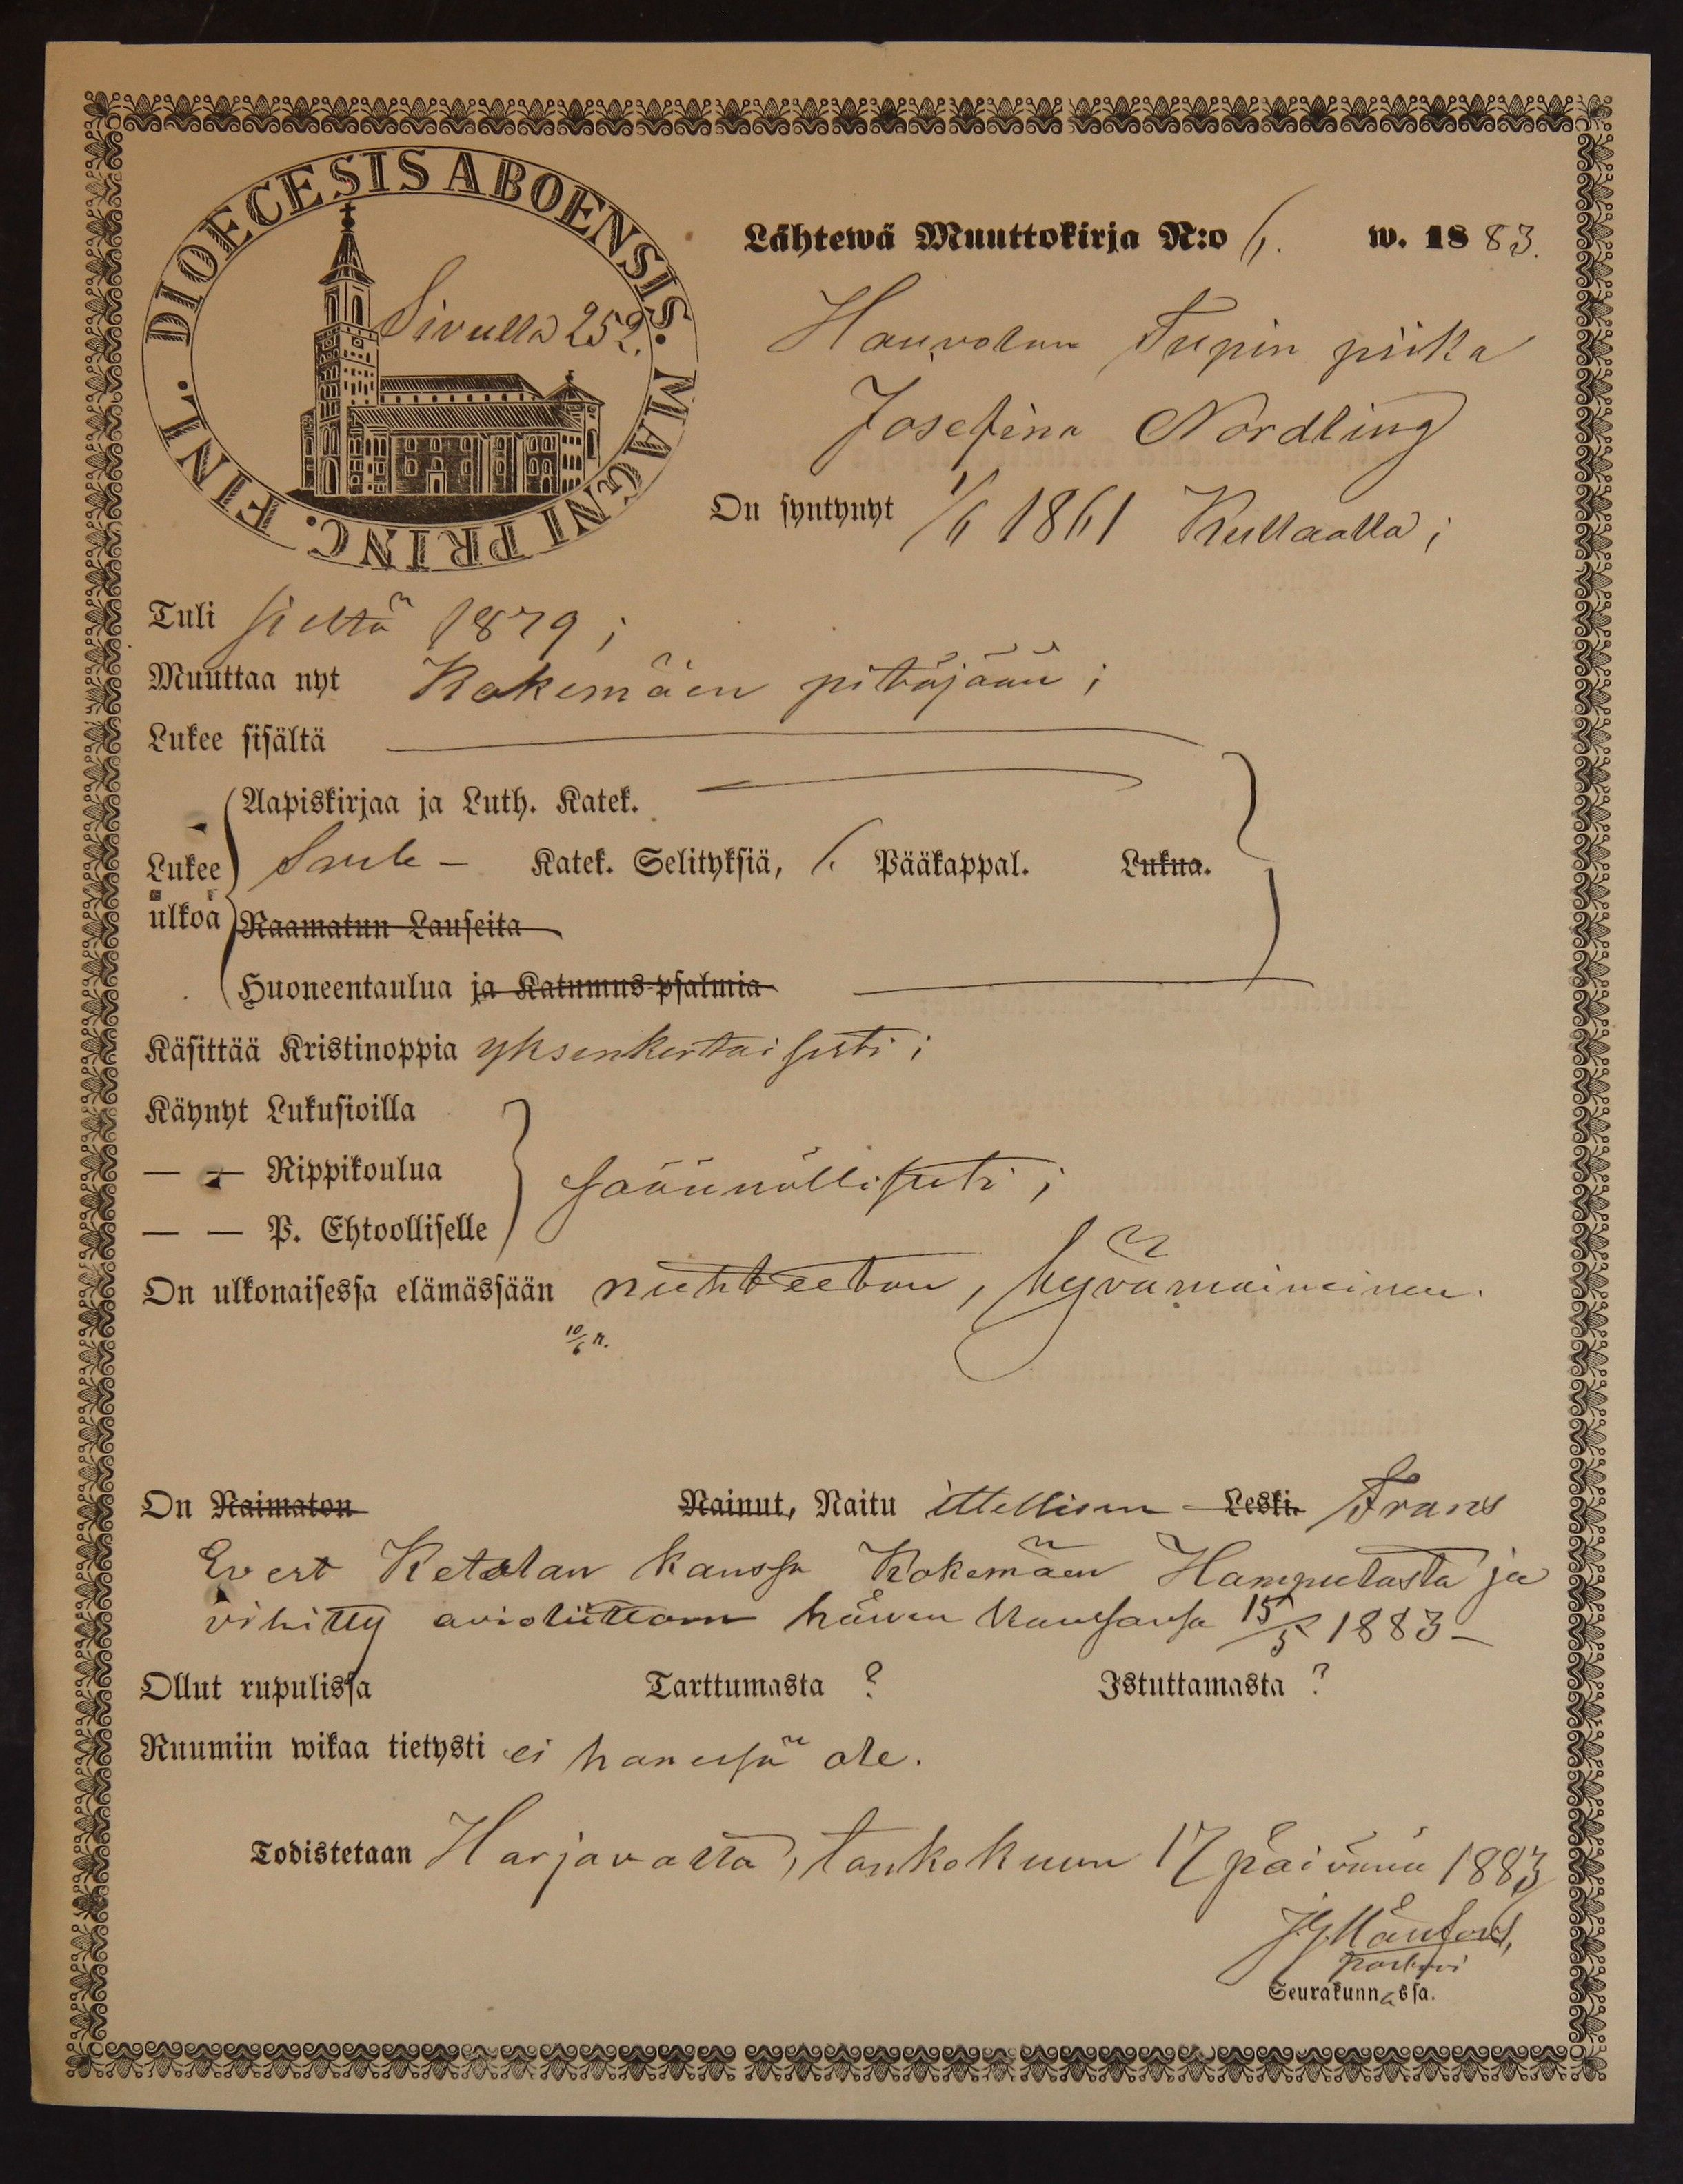 DIOECESIS ABOENSIS. MAGNI PRINC. FINL.
Sivulla 252.
Lähtewä Muuttokirja N:o 6. w. 1883.
Tupin piika
Josefina Nordling
On syntynyt 1/6 1861 Kullaalla;
Tuli sieltä 1879;
Muuttaa nyt Kokemäen pitäjään;
Lukee sisältä
Aapiskirjaa ja Luth. Katek.
Lukee Katek. Selityksiä, Pääkappal. Lukua.
ulkoa Raamatun Lauseita
Huoneentaulua ja Katumus-psalmia
Käsittää Kristinoppia yksenkertaisesti;
Käynyt Lukusioilla
— — Rippikoulua säännöllisesti;
— — P. Ehtoolliselle
On ulkonaisessa elämässään nuhteeton, hyvämaineinen.
10/6 n.
On Naimaton Nainut, Naitu itellisen Leski. Frans
Evert Ketolan kanssa Kokemäen Hamputasta ja
vihitty avioliittoon hänen kanssansa 15/5 1883 –
Ollut rupulissa Tarttumasta ? Istuttamasta ?
Ruumiin wikaa tietysti ei hänessä ole.
Todistetaan Harjavalta, toukokuun 17 päivänä 1883
Seurakunnassa.